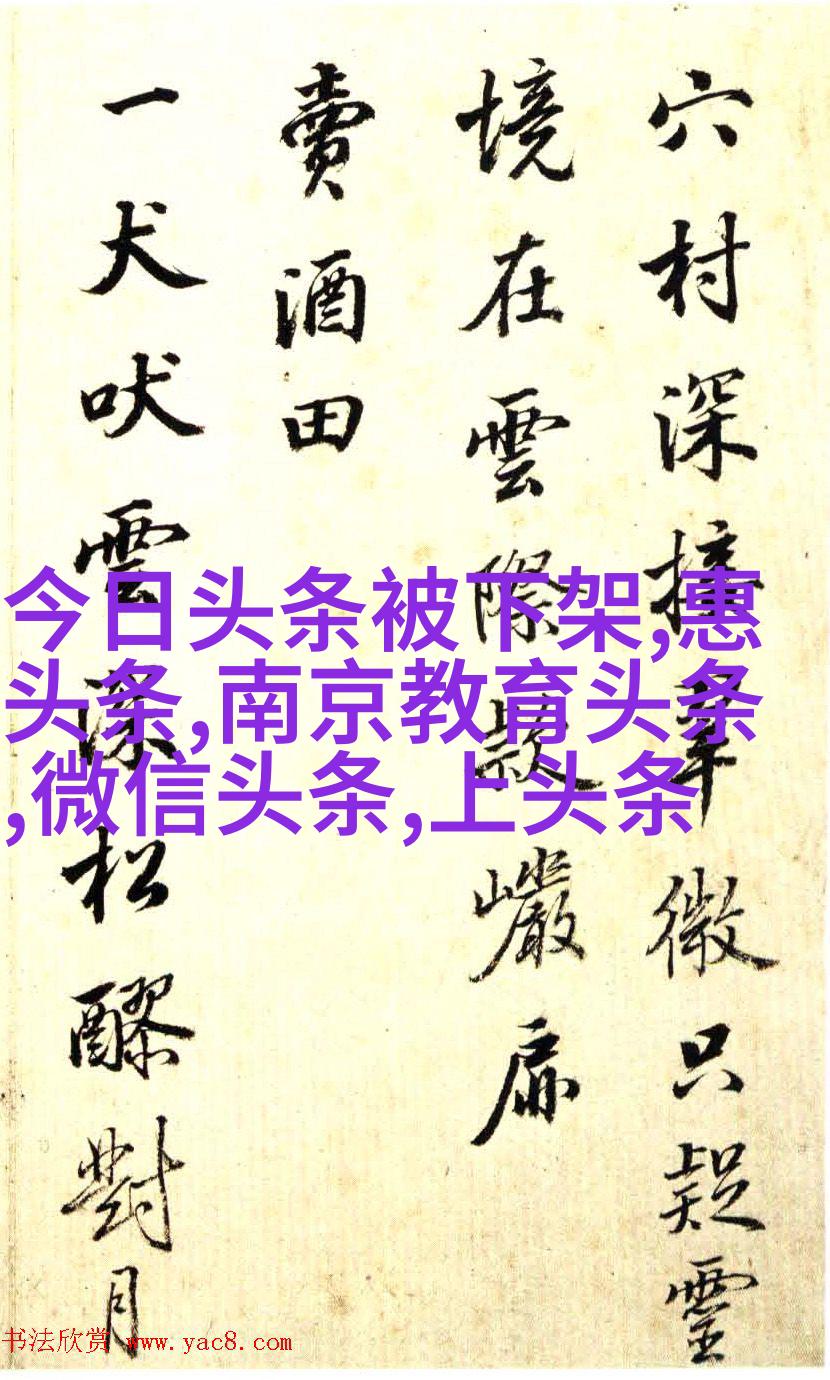 穴村深擁翠微只疑靈
境在雲際敲巖扉
賣酒田
一犬吠雲深松醪對月
今日头条被下架,惠
头条,南京教育头条
,微信头条,上头条
书法欣赏 www.yac8.com